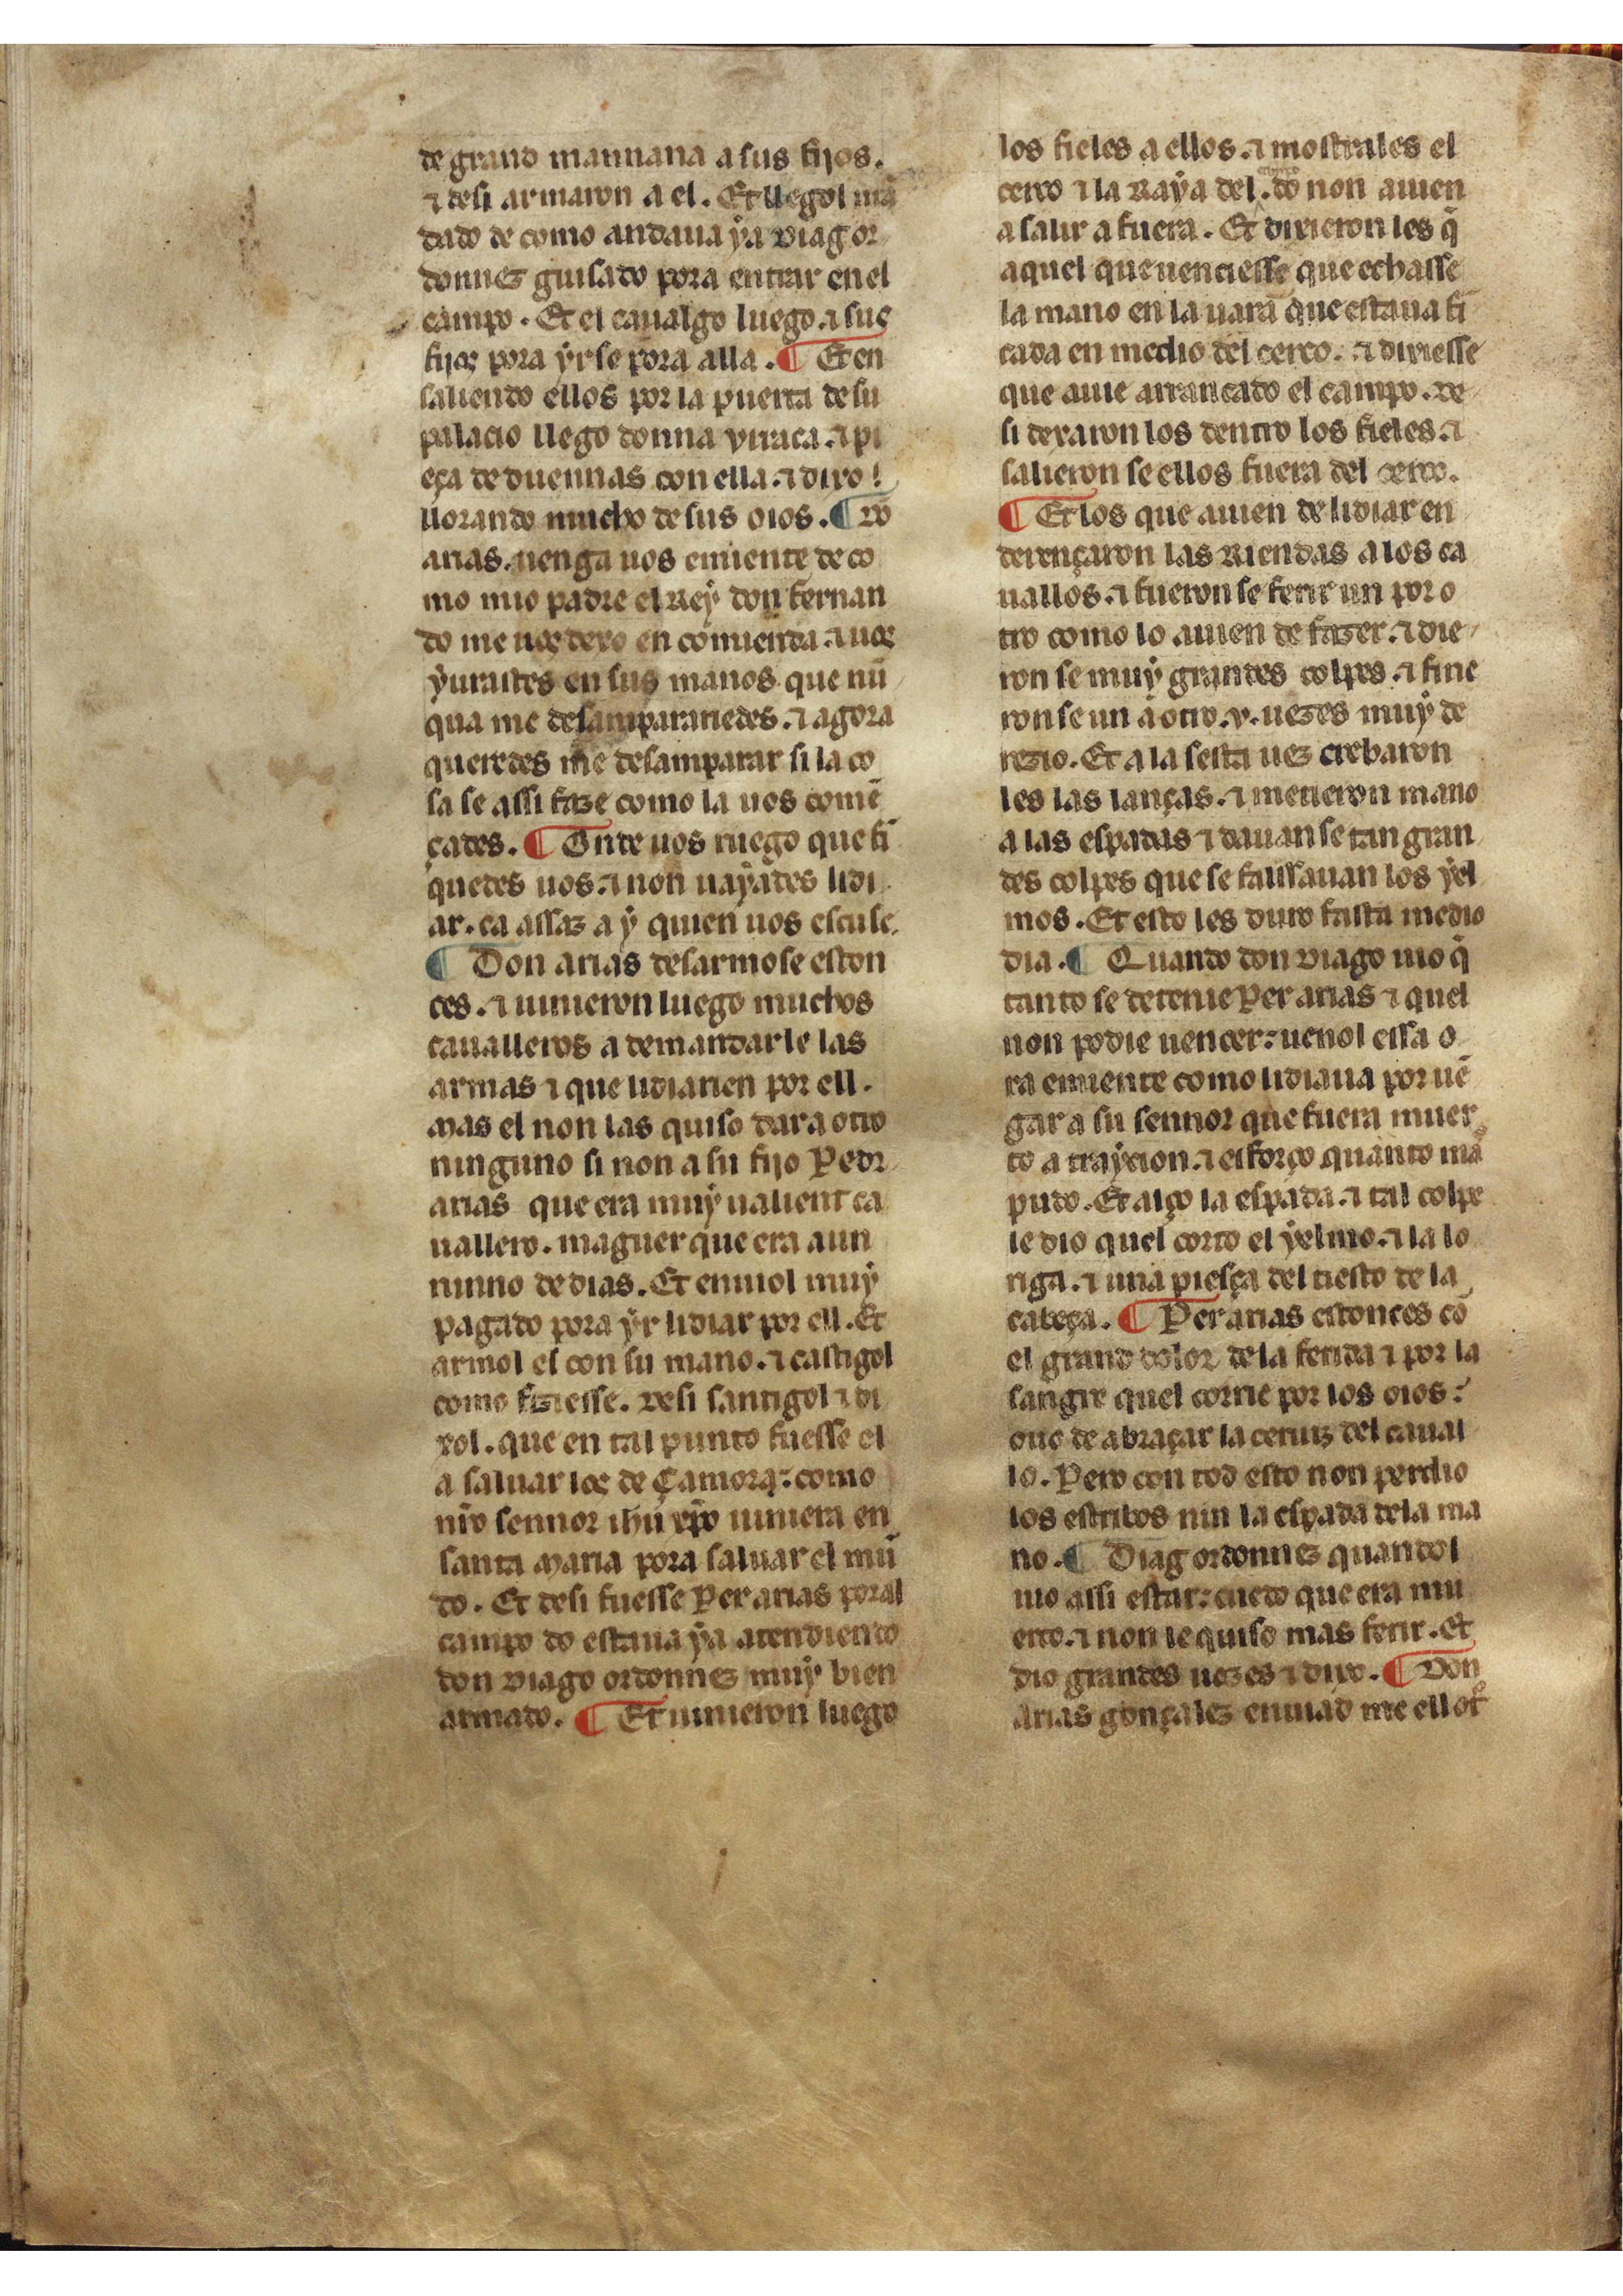 de grand mannana a sus fijos.
⁊ desi armaron a el. Et llegol mã
dado de como andaua ya diag or
donnez guisado pora entrar en el
campo. Et el caualgo luego. ⁊ sus
fijos pora yrse pora alla. ¶ Et en
saliendo ellos por la puerta de su
palacio llego donna vrraca. ⁊ pi
eça de duennas con ella. ⁊ dixol
llorando mucho de sus oios. ¶ Dõ
arias. uenga uos emiente de co
mo mio padre el Rey don fernan
do me uos dexo en comienda. ⁊ uos
yurastes en sus manos que nũ
qua me desampararíedes. ⁊ agora
queredes me desamparar si la co
sa se assi faze como la uos comẽ
çades. ¶ Onde uos ruego que fi
quedes uos. ⁊ non uayades lidi
ar. ca assaz a y quien uos escuse.
¶ Don arias desarmose eston
ces. ⁊ uinieron luego muchos
caualleros a demandarle las
armas ⁊ que lidiarien por ell.
mas el non las quiso dar a otro
ninguno si non a su fijo Pedr
arias que era muy ualient ca
uallero. maguer que era aun
ninno de dias. Et enuiol muy
pagado pora yr lidiar por ell. Et
armol el con su mano. ⁊ castigol
como fiziesse. Desi santigol ⁊ di
xol. que en tal punto fuesse el
a saluar los de Çamora: como
nr̃o sennor ihũ xp̃o uiniera en
santa maria pora saluar el mũ
do. Et desi fuesse Per arias poral
campo do estaua ya atendiendo
don diago ordonnez muy bien
armado. ¶ Et uinieron luego
los fieles a ellos. ⁊ mostrales el
cerco ⁊ la Raya del. do non auien
a salir a fuera. Et dixieron les q̃
aquel que uenciesse que echasse
la mano en la uara que estaua fi
cada en medio del cerco. ⁊ dixiesse
que auie arrancado el campo. de
si dexaron los dentro los fieles. ⁊
salieron se ellos fuera del cerco.
¶ Et los que auien de lidiar en
derençaron las Riendas a los ca
uallos. ⁊ fueron se ferir un por o
tro como lo auien de fazer. ⁊ die
ron se muy grandes colpes. ⁊ firie
ron se un a otro. v. uezes muy de
rezio. Et a la sesta uez crebaron
les las lanças. ⁊ metieron mano
a las espadas ⁊ dauan se tan gran
des colpes que se falssauan los yel
mos. Et esto les duro fasta medio
dia. ¶ Quando don diago uio q̃
tanto se detenie Per arias ⁊ quel
non podie uencer: uenol essa o
ra emiente como lidiaua por uẽ
gar a su sennor que fuera muer
to a traycion. ⁊ esforço quanto mas
pudo. Et alço la espada. ⁊ tal colpe
le dio quel corto el yelmo. ⁊ la lo
riga. ⁊ una piesça del tiesto de la
cabeça. ¶ Per arias estonces cõ
el grand dolor de la ferida ⁊ por la
sangre quel corrie por los oios:
ouo de abraçar la ceruiz del caual
lo. Pero con tod esto non perdio
los estribos nin la espada de la ma
no. ¶ Diag ordonnez quandol
uio assi estar: cuedo que era mu
erto. ⁊ non le quiso mas ferir. Et
dio grandes uozes ⁊ dixo. ¶ Don
Arias gonçalez enuiad me ell otr̃o